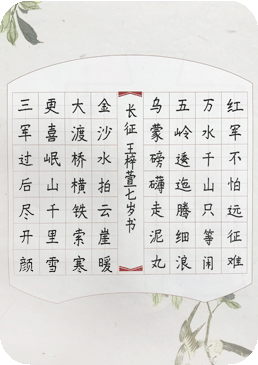 红军不怕远征难
万水千山只等闲
五岭逶迤腾细浪
乌蒙磅礴走泥丸
长征 王梓萱七岁书
金沙水拍云崖暖
大渡桥横铁索寒
更喜岷山千里雪
三军过后尽开颜